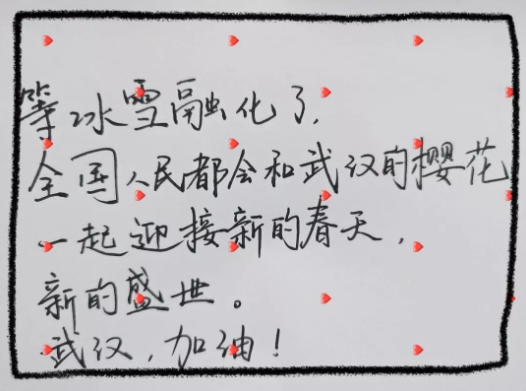 等冰雪融化了，
全国人民都会和武汉的樱花
一起迎接新的春天，
新的盛世。
武汉，加油！